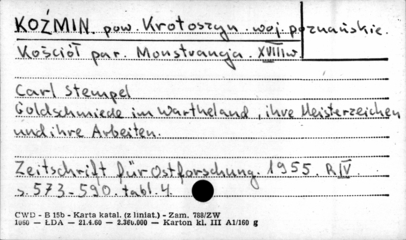 KOŹMIN. pow. Krotoszyn. woj. poznańskie.
Kościół par. Monstrancja. XVIII w.
Carl Stempel
Goldschmiede im Wartheland, ihre Meisterzeichen
und ihre Arbeiten.
Zeitschrift für Ostforschung. 1955. R IV.
s. 573-590. tabl. 4.
CWD - B 15b - Karta katal. (z liniat.) - Zam. 788/ZW
1060 — LDA — 21.4.60 — 2.380.000 — Karton kl. III A1/160 g